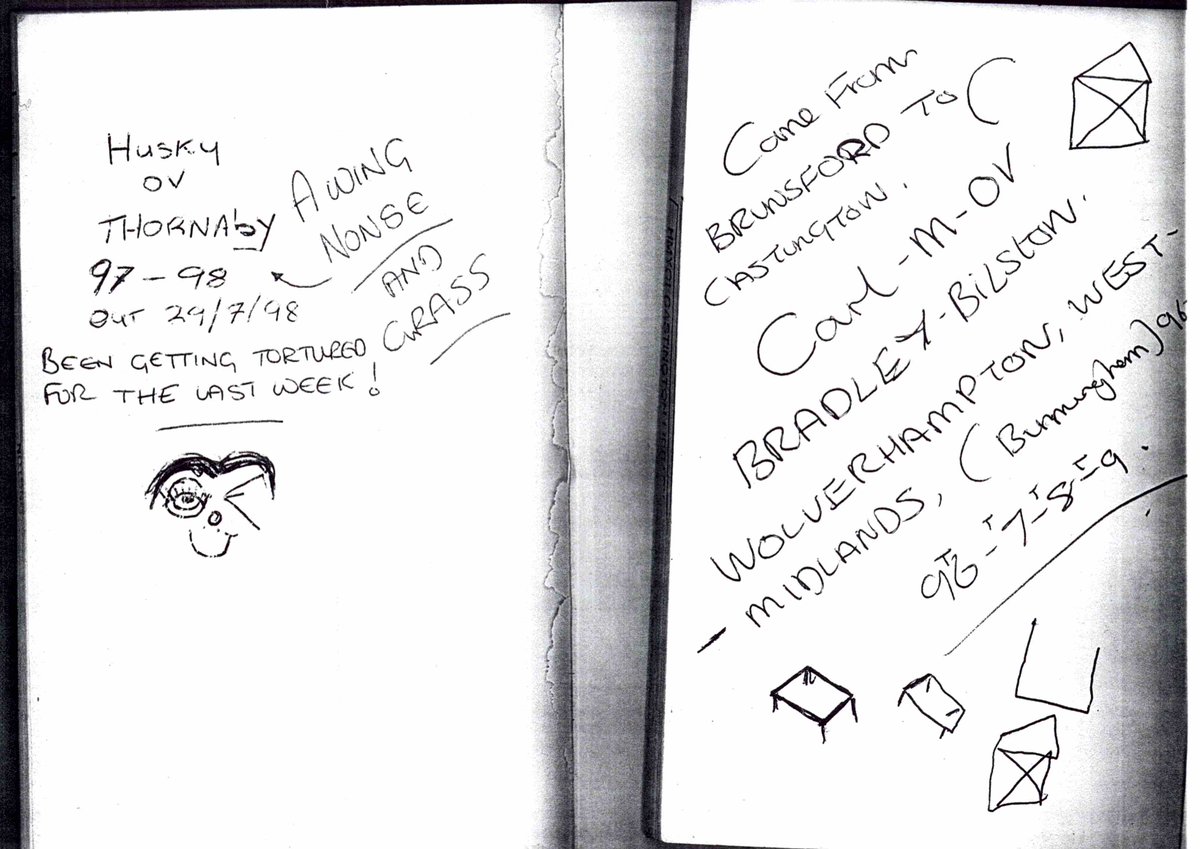 Husky
OV
THORNAby
97-98
OUT 29/7/98
BEEN GETTING TORTURED
FOR THE LAST WEEK!
A WING
NONSE
AND
GRASS
Came From
BRUNSFORD To (
CASTLINGTON.
Carl-M-OV
BRADLEY-BILSTON.
WOLVERHAMPTON, WEST-
- MIDLANDS, (Burmungham) 96-
96-7-8-9.